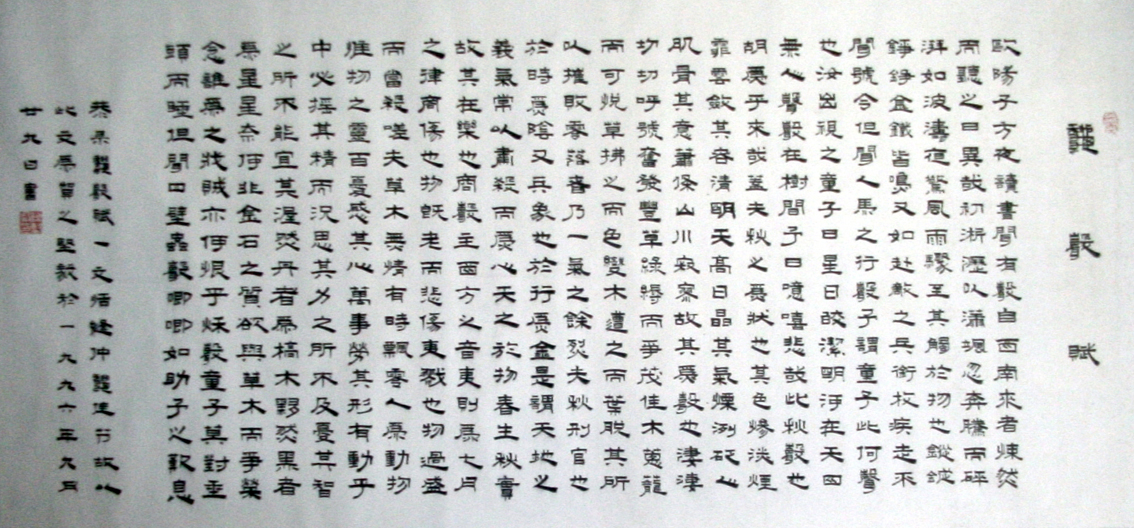 龝聲賦
歐陽子方夜讀書聞有聲自西南來者悚然
而聽之曰異哉初淅瀝以瀟颯忽奔騰而砰
湃如波濤夜驚風雨驟至其觸於物也鏦鏦
錚錚金鐵皆鳴又如赴敵之兵銜枚疾走不
聞號令但聞人馬之行聲予謂童子此何聲
也汝出視之童子曰星月皎潔明河在天四
無人聲聲在樹間予曰噫嘻悲哉此秋聲也
胡為乎來哉蓋夫秋之為狀也其色慘淡煙
霏雲斂其容清明天高日晶其氣慄冽砭人
肌骨其意蕭條山川寂寥故其為聲也淒淒
切切呼號奮發豐草綠縟而爭茂佳木蔥蘢
而可悅草拂之而色變木遭之而葉脫其所
以摧敗零落者乃一氣之餘烈夫秋刑官也
於時為陰又兵象也於行為金是謂天地之
義氣常以肅殺而為心天之於物春生秋實
故其在樂也商聲主西方之音夷則為七月
之律商傷也物既老而悲傷夷戮也物過盛
而當殺嗟夫草木無情有時飄零人為動物
惟物之靈百憂感其心萬事勞其形有動乎
中必搖其精而況思其力之所不及憂其智
之所不能宜其渥然丹者為槁木黟然黑者
為星星奈何非金石之質欲與草木而爭榮
念誰為之戕賊亦何恨乎秋聲童子莫對垂
頭而睡但聞四壁蟲聲唧唧如助予之歎息
恭录龝聲賦一文適逢仲龝佳节故以
此文為賀之堅毅於一九九六年九月
廿九日書